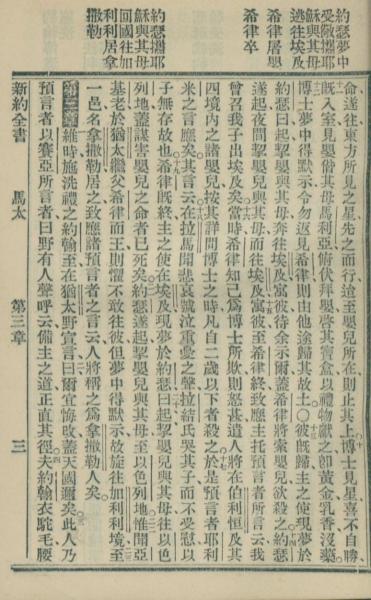 約瑟夢中
受敬攜耶
穌與其母
逃往埃及
希律屠嬰
希律卒
約瑟攜耶
穌與其母
回國往加
利利居拿
撒勒
命遂往東方所見之星先之而行逾至嬰兒所在則止其上博士見星喜不自勝
既入室見嬰偕其母馬利亞俯伏拜嬰啓其寶盒以禮物獻之卽黃金乳香沒藥
博士夢中得默示令勿返見希律則由他途歸其故土〇彼既歸主之使現夢於
約瑟曰起挈嬰兒與其母奔往埃及寓彼待余示爾蓋希律將索嬰兒欲殺之約瑟
遂起夜間挈嬰兒與其母而往埃及寓彼至希律終致應主托預言者所言云我
曾召我子出埃及矣當時希律知己為博士所欺則怒甚遣人將在伯利恒及其
四境內之諸嬰兒按其詳問博士之時凡自二歲以下者殺之於是預言者耶利
米之言應矣其言云在拉馬聞悲哀譏泣重憂之聲拉結氏哭其子而不受慰以
子無存故也希律既終主之使在埃及現夢於約瑟曰起挈嬰兒與其母往以色
列地蓋謀害嬰兒之命者已死矣約瑟遂起挈嬰兒與其母至以色列地惟聞亞
基老於猶太繼父希律而王則懼不敢往彼但夢中得默示故旋往加利利境至
一邑名拿撒勒居之致應諸預言者之言云人將稱之為拿撒勒人矣
第三章 維時施洗禮之約翰至在猶太野宣言曰爾宜悔改蓋天國邇矣此人乃
預言者以賽亞所言者曰野有人聲呼云備主之道正直其徑夫約翰衣駝毛腰
新約全書 馬太 第三章 三